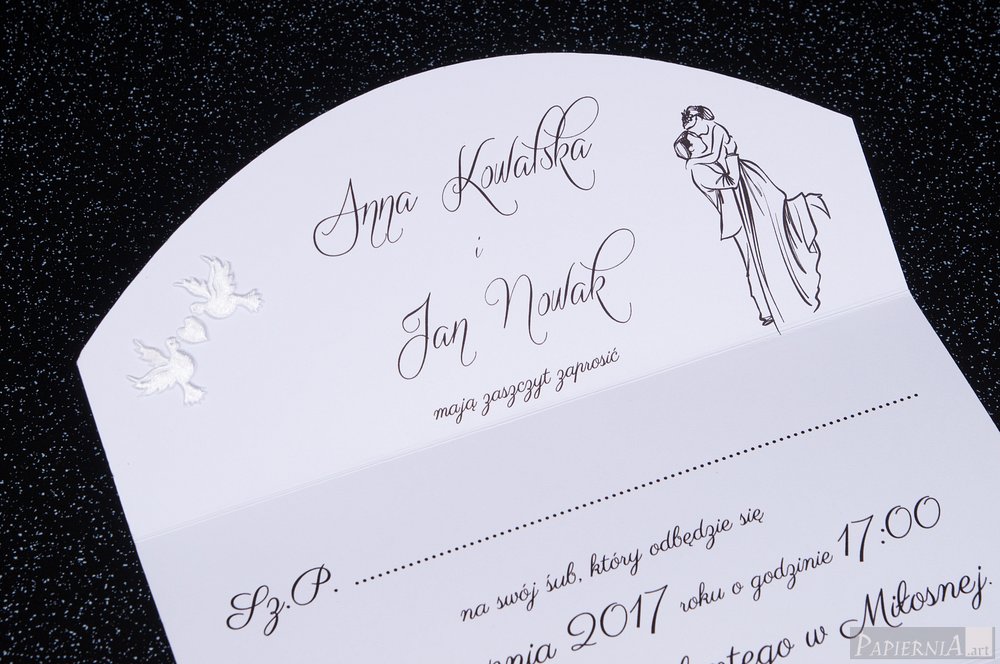 Anna Kowalska
i
Jan Nowak
mają zaszczyt zaprosić
Sz.P. ................................................................
na swój ślub, który odbędzie się
2017 roku o godzinie 17:00
w Miłosnej.
PAPIERNIA.art